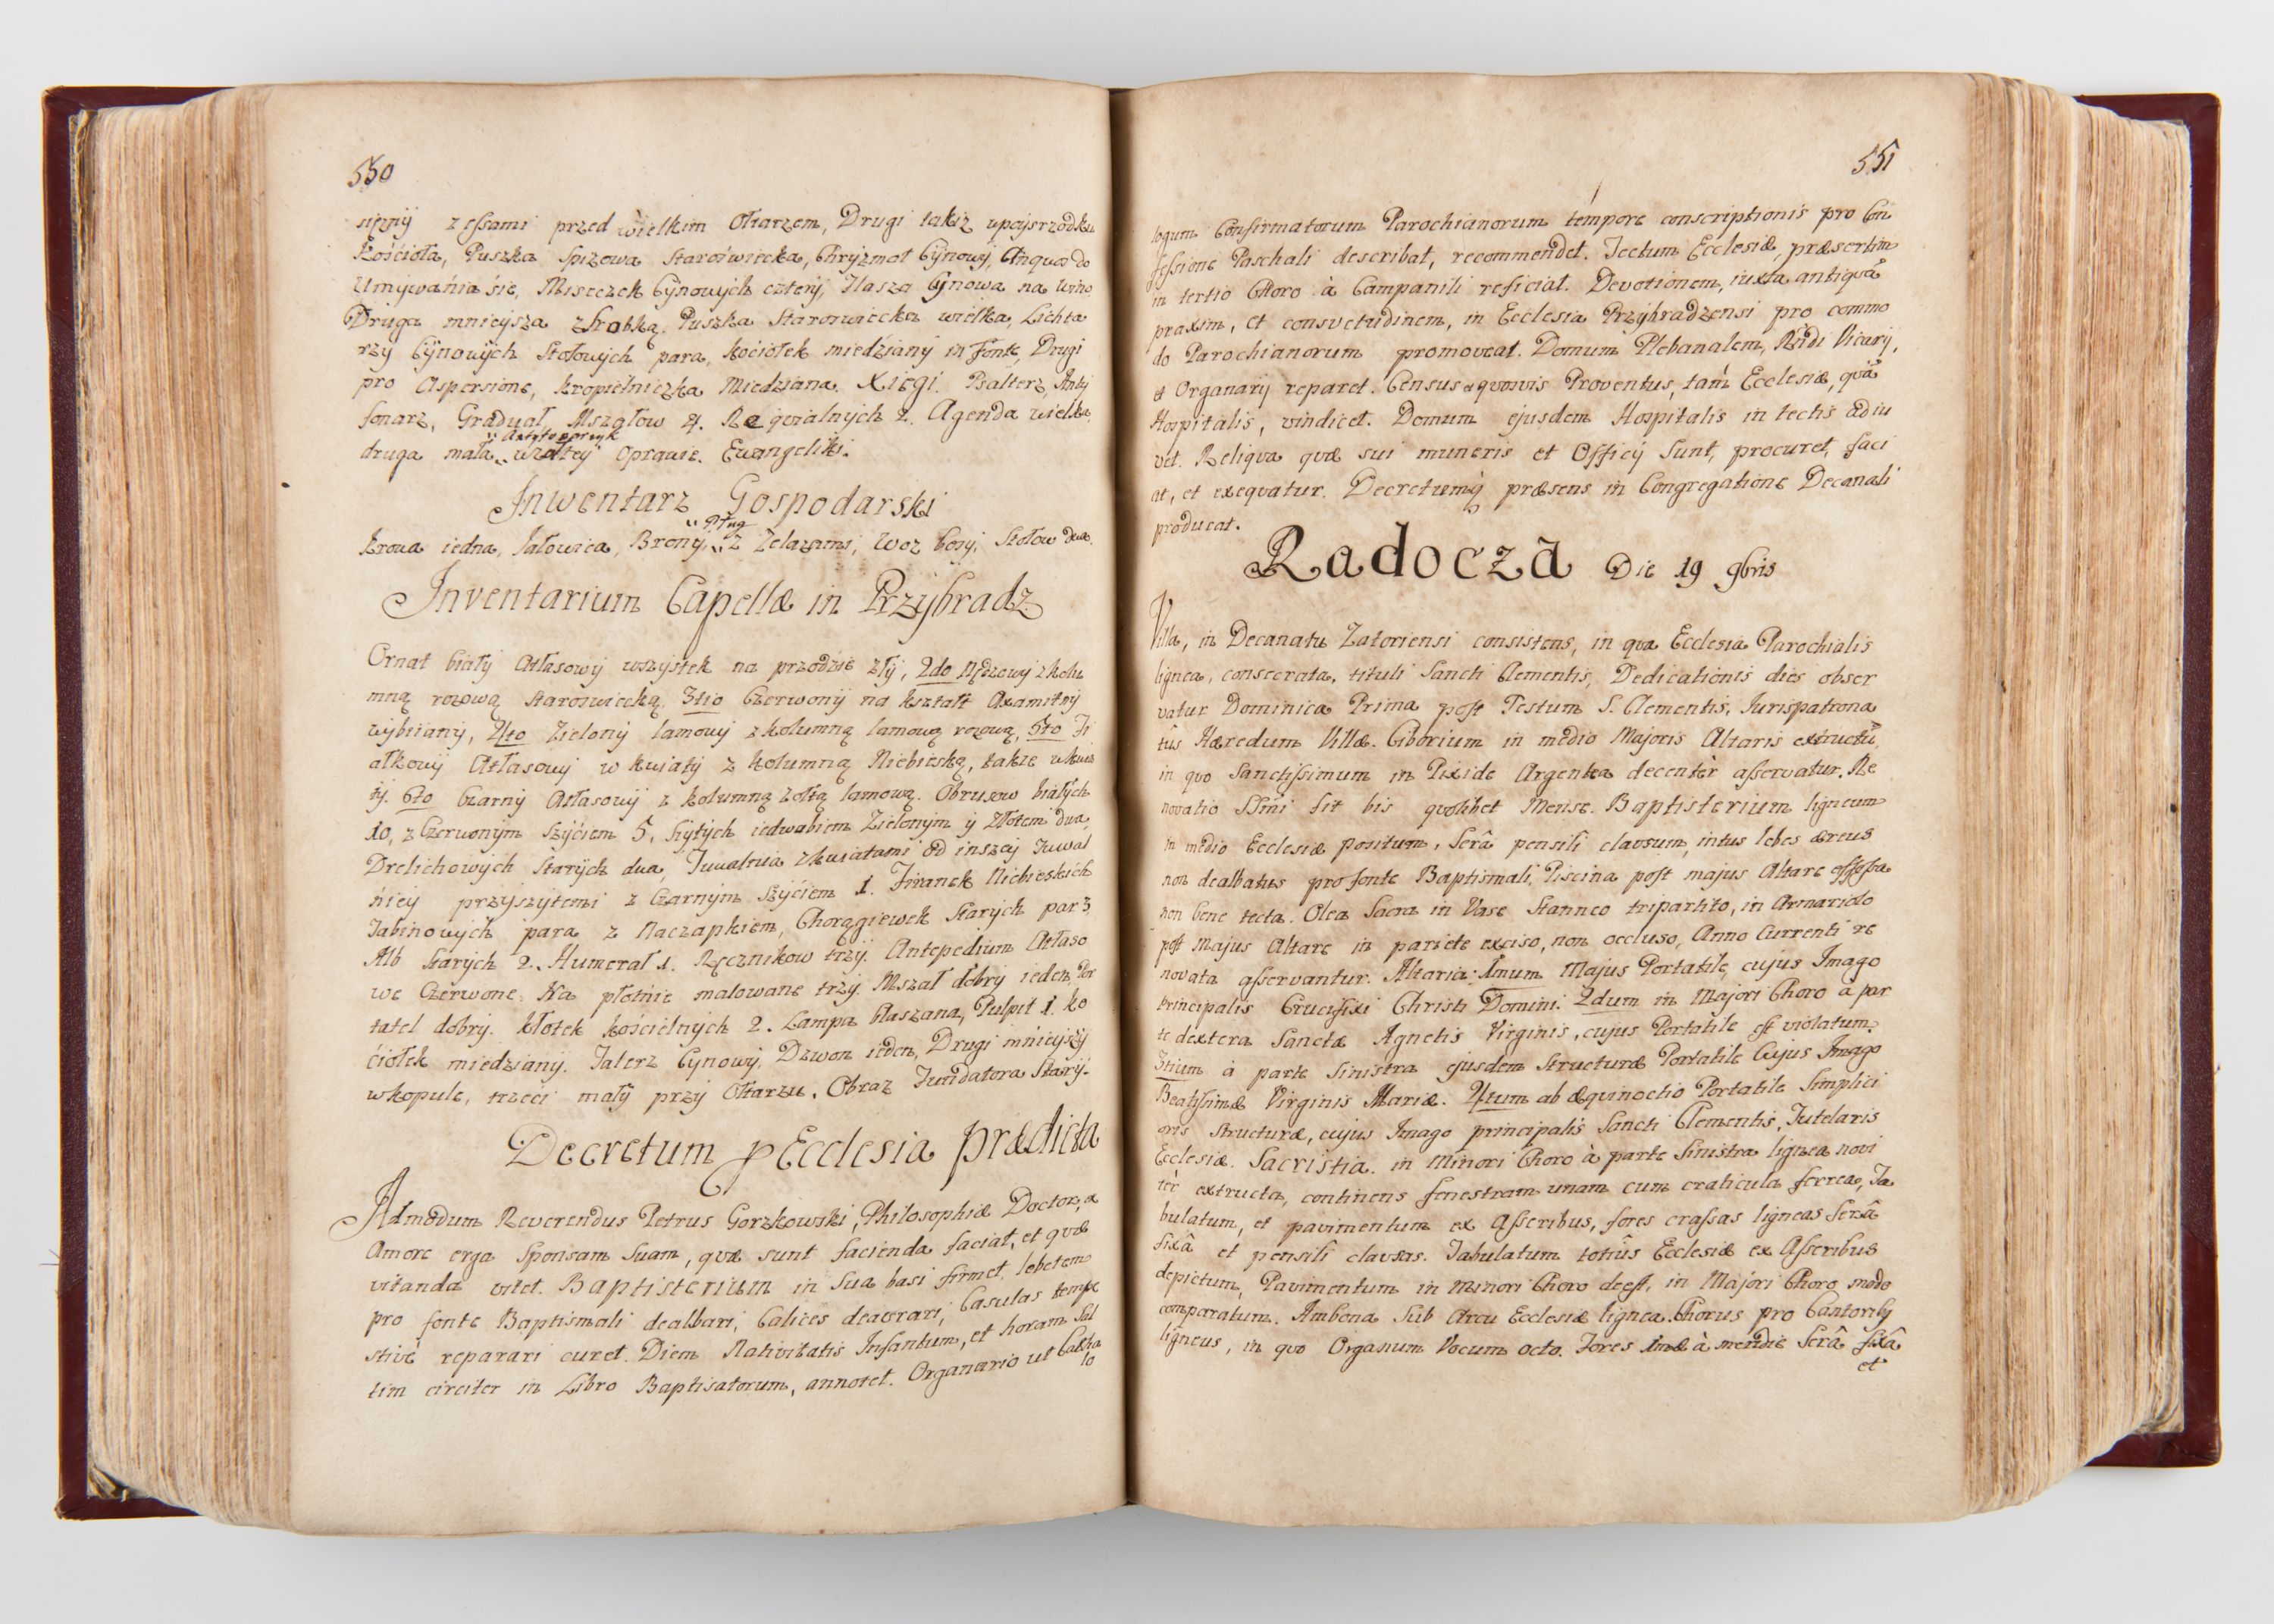 550
zessami przed wielkim Ołtarzem, Drugi takiz wpojsrzodku
Kościoła, Puszka Spizowa Staroświecka, Chryzmał Cynowy, do
Umywania sie, Miseczek Cynowych cztery, Flasza Cynowa na wino
Druga mnieysza z Srobką. Puszka Staroswiecka wielka, Lichta
rzy Cynowych Stołowych para, kociołek miedziany in Fonte, Drugi
pro Aspersione, kropielniczka Miedziana. Xięgi. Psalterz, Anty
fonarz, Graduał, Mszałow 4. Reqvialnych 2. Agenda wielka
Antyfonarzyk
druga mała wzołtey Oprawie. Ewangeliki.
Inwentarz Gospodarski
Pług
krowa iedna, Jałowica, Brony z Zelazami, Woz bosy, Stołow dwa
Inventarium Capellæ in Przybradz
Ornat biały Atłasowy wszystek na przodzie zły, 2do z kolu
mną rozową staroswiecką, 3tio Czerwony na kształt Axamitny
wybiiany, 4to Zielony lamowy z kolumną lamową rozową, 5to Fi
ałkowy Atłasowy w kwiaty z kolumną Niebieską, takze wkwia
ty. 6to Czarny Atłasowy z kolumną zołtą lamową. Obrusow białych
10, z Czerwonym szyciem 5, szytych iedwabiem Zielonym y Złotem dwa,
Drelichowych starych dua, Tuwalnia zkwiatami od inszey Tuwal
niey przyszytemi z Czarnym szyciem 1. Firanek Niebieskich
Tabinowych para z Naczapkiem, Chorągiewek starych par 3
Alb starych 2. Humerał 1. Ręcznikow trzy. Antepedium Atłaso
we Czerwone. Na płotnie malowane trzy. Mszał dobry ieden, Por
tatel dobry. kłotek kościelnych 2. Lampa Blaszana, Pulpit 1. ko
ciołek miedziany. Talerz Cynowy. Dzwon ieden, Drugi mnieyszy
wkopule, trzeci mały przy Ołtarzu. Obraz Fundatora stary.
Decretum p Ecclesia prædicta
Admodum Reverendus Petrus Gorzkowski, Philosophiæ Doctor, a
Amore erga Sponsam suam, quæ sunt facienda faciat, et quæ
vitanda vitet. Baptisterium in sua basi firmet, lebetem
pro fonte Baptismali dealbari, Calices deaurari, Casulas tempe
stivè reparari curet. Diem Nativitatis Infantum, et horam sal
tim circiter in Libro Baptisatorum, annotet. Organario ut Catha
lo
551
logum Confirmatorum Parochianorum tempore conscriptionis pro Con
fessione Paschali describat, recommendet. Tectum Ecclesiæ, præsertim
in tertio Choro à Campanili reficiat. Devotionem, iuxta antiquã
praxim, et consvetudinem, in Ecclesia Przybradzensi pro commo
do Parochianorum promoveat. Domum Plebanalem, Rndi Vicarij,
et Organarij reparet. Census et quosvis Proventus, tam Ecclesiæ, quã
Hospitalis, vindicet. Domum ejusdem Hospitalis in tectis adiu
vet. Reliqua quæ sui muneris et Officij sunt, procuret, faci
at, et exequatur. Decretumq præsens in Congregatione Decanali
producat.
Radocza Die 19 9bris
Villa, in Decanatu Zatoriensi consistens, in qua Ecclesia Parochialis
lignea, consecrata, tituli Sancti Clementis, Dedicationis dies obser
vatur Dominica Prima post Festum S. Clementis, Jurispatrona
tûs Hæredum Villæ. Ciborium in medio Majoris Altaris extructũ,
in quo Sanctissimum in Pixide Argentea decentèr asservatur. Re
novatio SSmi fit bis quolibet Mense. Baptisterium ligneum
in medio Ecclesiæ positum, serâ pensili clausum, intus lebes æreus
non dealbatus pro fonte Baptismali, Piscina post majus Altare effossa
non bene tecta. Olea Sacra in Vase Stanneo tripartito, in Armariolo
post Majus Altare in pariete exciso, non occluso, Anno Currenti re
novata asservantur. Altaria: 1mum Majus Portatile, cujus Imago
principalis Crucifixi Christi Domini. 2dum in Majori Choro à par
te dextera Sanctæ Agnetis Virginis, cujus Portatile est violatum.
3tium à parte sinistra ejusdem structuræ Portatile Cujus Imago
Beatissimæ Virginis Mariæ. 4tum ab æquinoctio Portatile Simplici
oris structuræ, cujus Imago principalis Sancti Clementis, Tutelaris
Ecclesiæ. Sacristia. in Minori Choro à parte Sinistra lignea novi
tèr extructa, continens fenestram unam cum craticula ferrea, Ta
bulatum, et pavimentum ex Asseribus, fores crassas ligneas serâ
fixâ et pensili clausas. Tabulatum totiûs Ecclesiæ ex Asseribus
depictum, Pavimentum in Minori Choro deest, in Majori Choro modo
comparatum. Ambona sub Arcu Ecclesiæ lignea. Chorus pro Cantoribq
ligneus, in quo Organum Vocum octo. Fores à meridie serâ fixâ
et